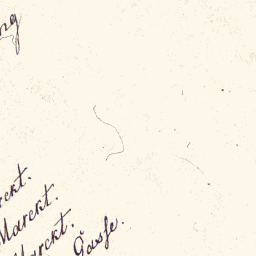 ng
rckt.
Marckt.
Marckt.
Gasse.